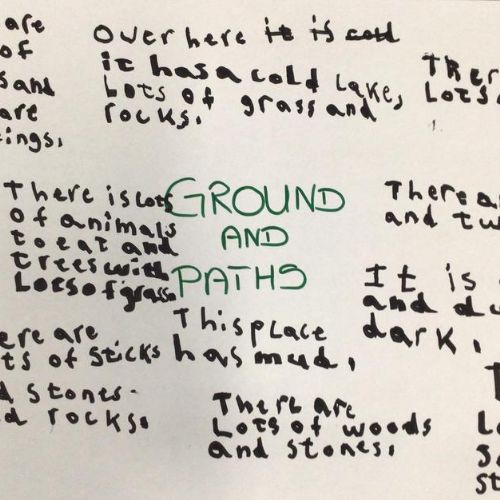 are
of
sand
are
ings.
Over here it is cold
it has a cold lake,
Lots of grass and
rocks.
Ther
Lots
There is Lots
of animals
to eat and
trees with
Lots of grass.
GROUND
AND
PATHS
There a
and tw
It is
and du
dark.
This place
has mud.
ere are
ts of sticks
d stones
d rocks.
There are
Lots of woods
and stones.
T
Lo
st